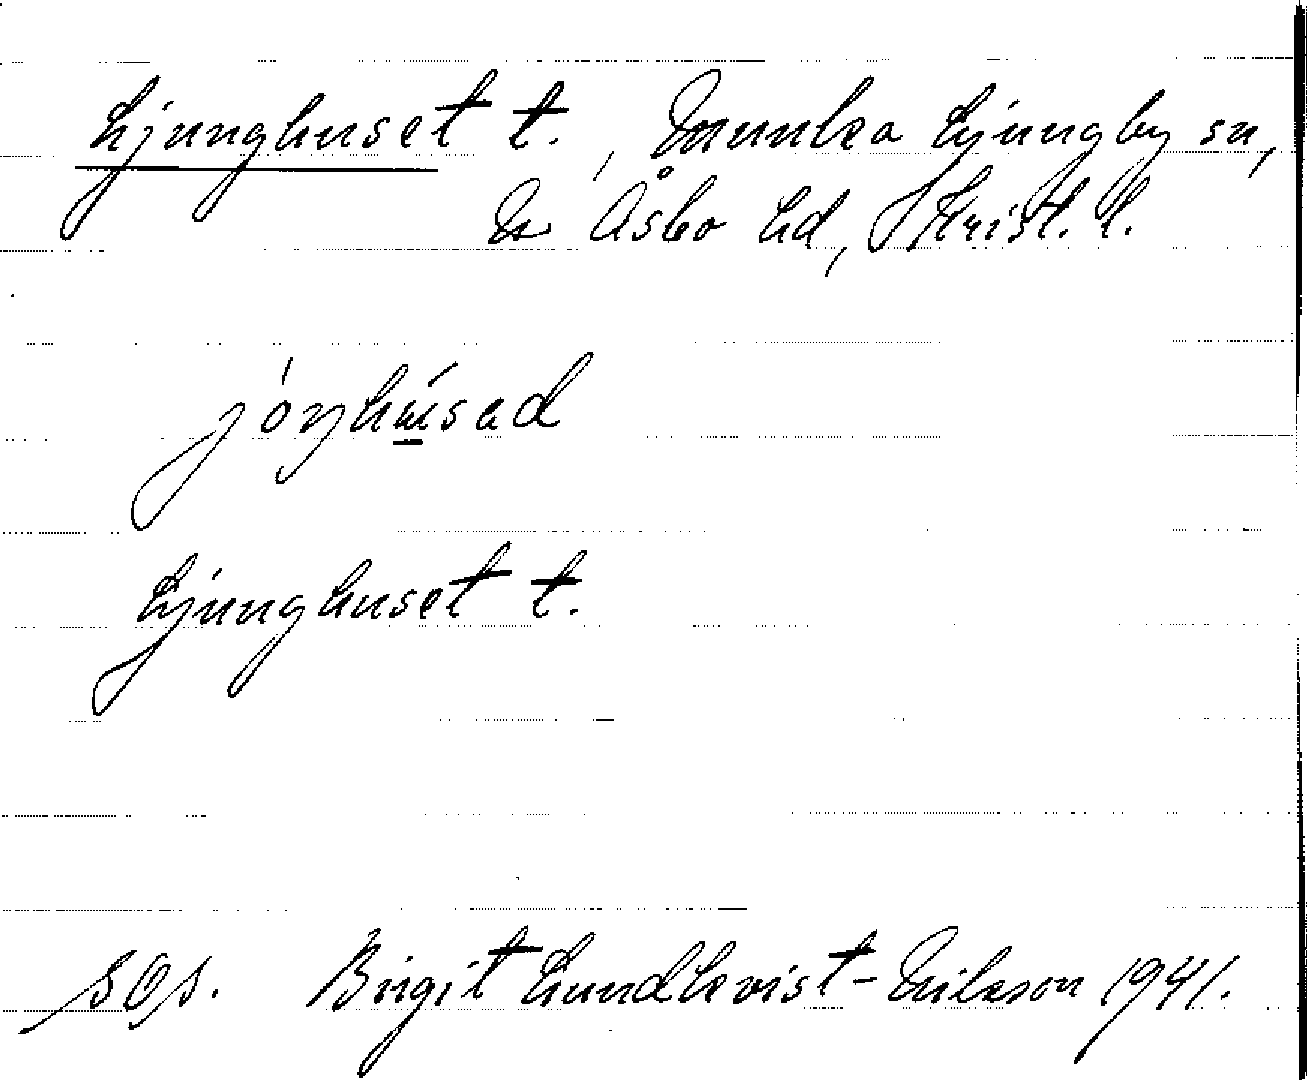 Ljunghuset t., Munka Ljungby sn,
N Åsbo hd, Krist. l.
jóŋhúsad
Ljunghuset t.
SOS. Birgit Lundkvist-Eriksson 1941.